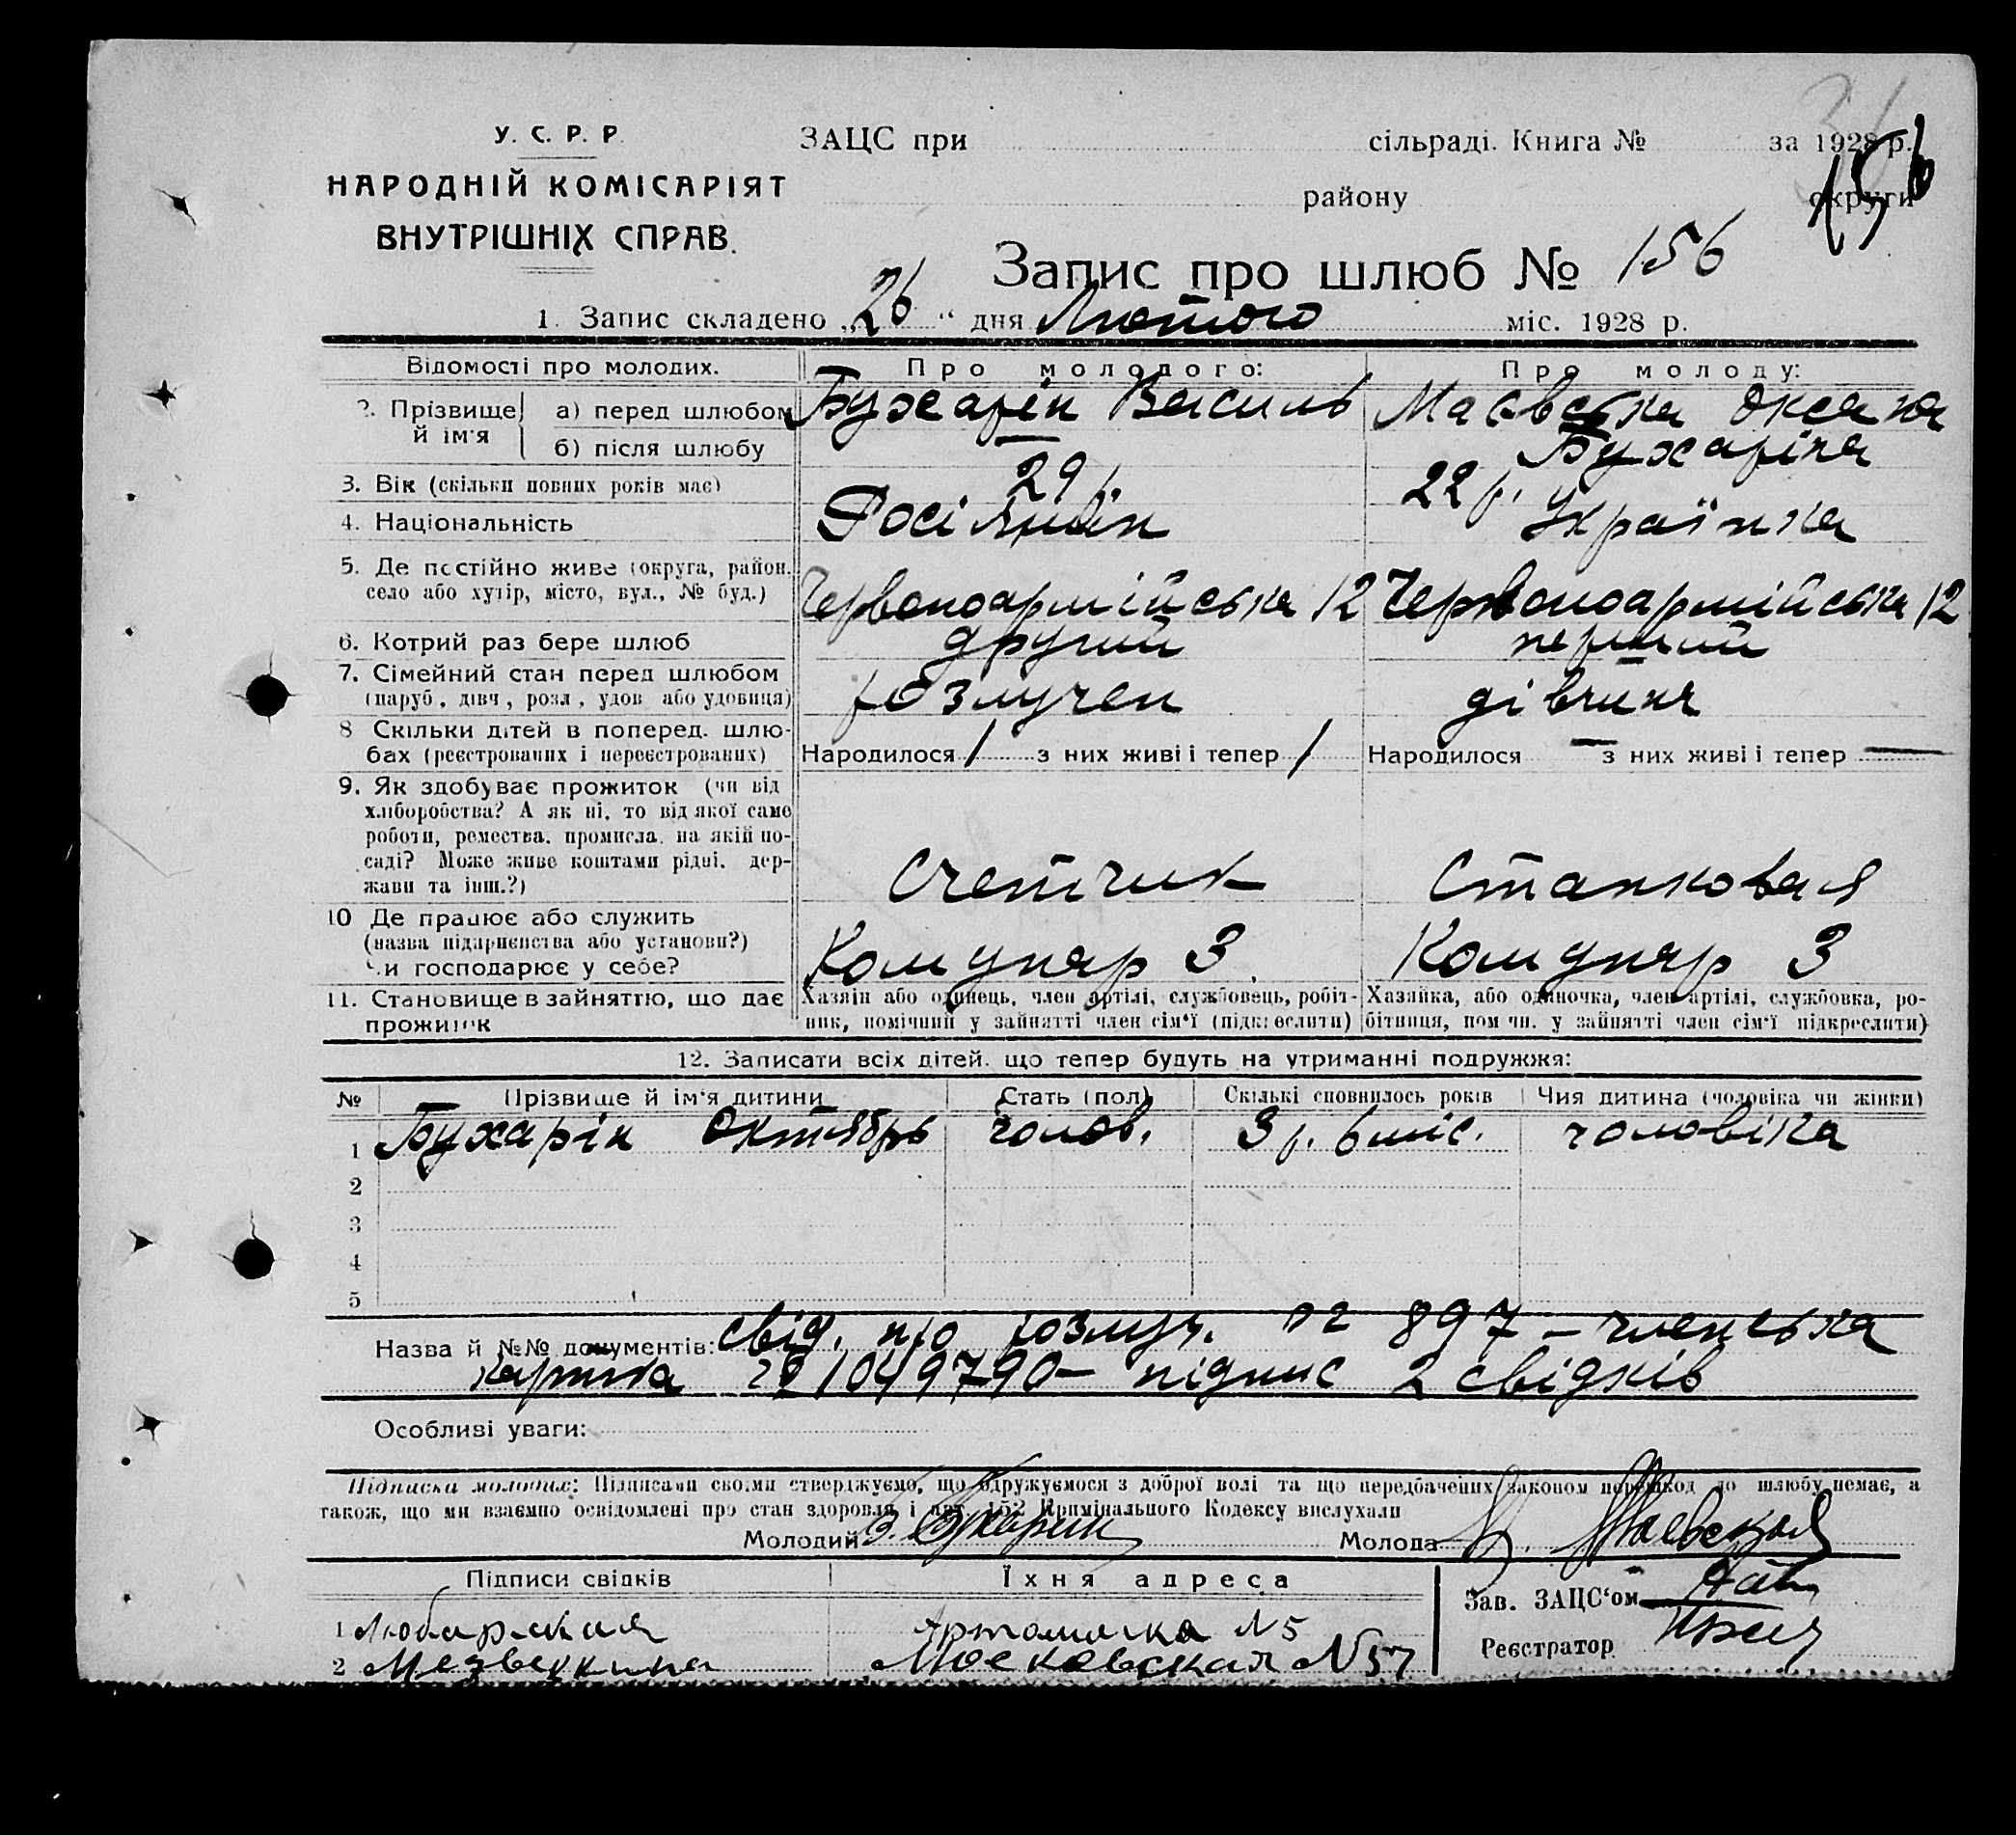 У. С. Р. Р.
НАРОДНІЙ КОМІСАРІЯТ
ВНУТРІШНІХ СПРАВ.
ЗАЦС при сільраді. Книга № за 1928 р.
району округи
156
Запис про шлюб № 156
1. Запис складено „26“ дня Лютого міс. 1928 р.
Відомості про молодих. Про молодого: Про молоду:
2. Прізвище й ім'я
а) перед шлюбом Бухарін Василь Маєвська Оксана
б) після шлюбу — Бухаріна
3. Вік (скільки повних років має) 29 р. 22 р.
4. Національність Росіянин Українка
5. Де постійно живе (округа, район, село або хутір, місто, вул., № буд.) Червоноармійська 12 Червоноармійська 12
6. Котрий раз бере шлюб другий перший
7. Сімейний стан перед шлюбом (паруб., дівч., розл., удов. або удовиця) розлучен дівчина
8 Скільки дітей в поперед. шлюбах (реєстрованих і нереєстрованих) Народилося 1 з них живі і тепер 1 Народилося — з них живі і тепер —
9. Як здобуває прожиток (чи від
хліборобства? А як ні, то від якої саме
роботи, ремества, промисла, на якій по-
саді? Може живе коштами рідні, дер-
жави та інш.?) Счетчик Станковая
10 Де працює або служить
(назва підприємства або установи?)
Чи господарює у себе? Комунар 3 Комунар 3
11. Становище в зайняттю, що дає прожиток
Хазяїн або одинець, член артілі, службовець, робіт-
ник, помічний у зайнятті член сім'ї (підкреслити)
Хазяйка, або одиночка, член артілі, службовка, ро-
бітниця, помічн. у зайнятті член сім'ї підкреслити)
12. Записати всіх дітей, що тепер будуть на утриманні подружжя:
№ Прізвище й ім'я дитини Стать (пол) Скількі сповнилось років Чия дитина (чоловіка чи жінки)
1 Бухарін Октябрь чолов. 3 р. 6 міс. чоловіка
2
3
4
5
Назва й №№ документів: свід. про розлуч. № 897 – членська
картка № 1049790 – підпис 2 свідків
Особливі уваги:
Підписка молодих: Підписами своїми стверджуємо, що одружуємося з доброї волі та що передбачених законом перешкод до шлюбу немає, а
також, що ми взаємно освідомлені про стан здоровля і арт. 152 Кримінального Кодексу вислухали
Молодий В. Бухарин Молода Маевская
Підписи свідків Їхня адреса
Зав. ЗАЦС'ом
1 Любарская N 5
Реєстратор
2 Медведкина Московская N 57